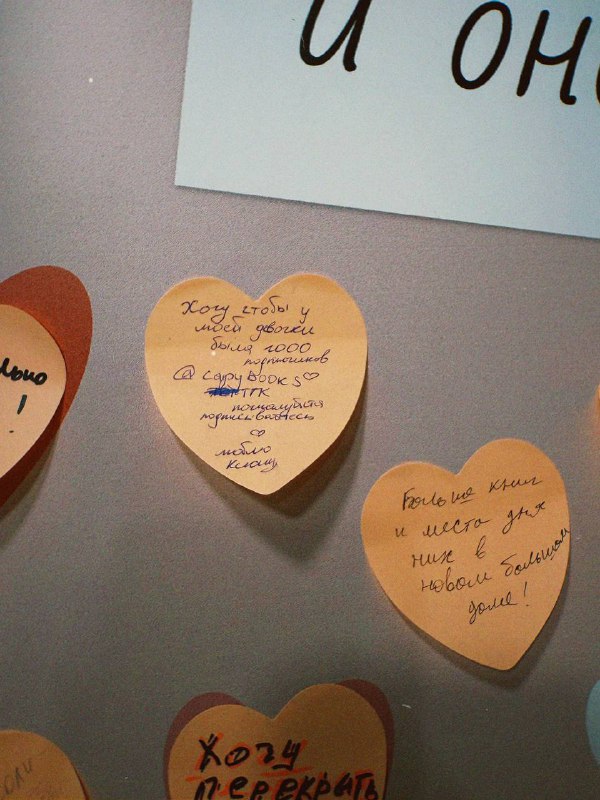 и он
лько
!
Хочу чтобы у
моей девочки
было 1000
подписчиков
@ capyBOOKS♡
ТГК
пожалуйста
подписывайтесь
♡
люблю
Ксюшу
Больше книг
и места для
них в
новом большом
доме!
Хочу
перекрыть